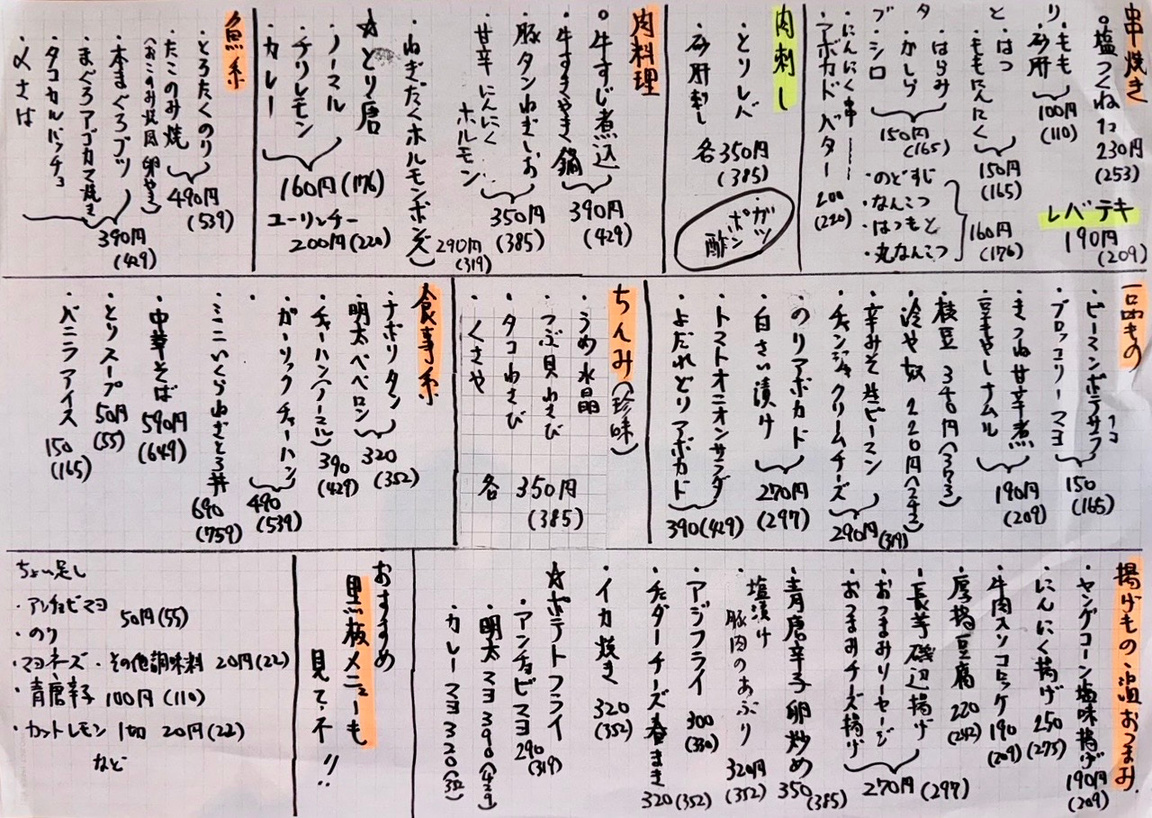 串焼き
・塩つくね 1コ 230円(253)
・もも
・砂肝
100円(110)
・はつ
・ももにんにく
150円(165)
・はらみ
・かしら
・シロ
150円(165)
・にんにく串
・アボカドバター 200(220)
・のどすじ
・なんこつ
・はつもと
・丸なんこつ
160円(176)
レバテキ
190円(209)
肉刺し
・とりレバ
・砂肝刺し
各350円(385)
ガツポン酢
肉料理
・牛すじ煮込
・牛すきやき鍋
390円(429)
・豚タンねぎしお
・甘辛にんにくホルモン
350円(385)
・ねぎだくホルモンポン酢
290円(319)
☆とり唐
・ノーマル
・チリレモン
・カレー
160円(176)
ユーリンチー
200円(220)
魚系
・とろたくのり
・たこのみ焼
(お好み焼風 卵やき)
490円(539)
・本まぐろブツ
・まぐろアゴカマ焼き
・タコカルパッチョ
・〆さば
390円(429)
一品もの
・ピーマンポテサラ 1コ
・ブロッコリーマヨ
150(165)
・きつね甘辛煮
・豆もやしナムル
190円(209)
・枝豆 340円(373)
・冷や奴 220円(242)
・辛みそ生ピーマン
・チャンジャクリームチーズ
290円(319)
・のりアボカド
・白さい漬け
270円(297)
・トマトオニオンサラダ
・よだれどりアボカド
390(429)
ちんみ(珍味)
・うめ水晶
・つぶ貝わさび
・タコわさび
・くさや
各 350円(385)
食事系
・ナポリタン
・明太ペペロン
320(352)
・チャーハン(ノーマル) 390(429)
・ガーリックチャーハン
490(539)
・ミニいくらねぎとろ丼 690(759)
・中華そば 590円(649)
・とりスープ 50円(55)
・バニラアイス 150(165)
揚げもの・温おつまみ
・ヤングコーン塩味揚げ 190円(209)
・にんにく揚げ 250(275)
・牛肉コロッケ 190(209)
・厚揚豆腐 220(242)
・長芋磯辺揚げ
・おつまみソーセージ
・おつまみチーズ揚げ
270円(297)
・青唐辛子卵炒め 350(385)
・塩漬け豚肉のあぶり 320円(352)
・アジフライ 300(330)
・チェダーチーズ春まき 320(352)
・イカ焼き 320(352)
☆ポテトフライ
・アンチョビマヨ 290(319)
・明太マヨ 390(429)
・カレーマヨ 320(352)
おすすめ
黒板メニューも
見て下!!
ちょい足し
・アンチョビマヨ 50円(55)
・のり
・マヨネーズ・その他調味料 20円(22)
・青唐辛子 100円(110)
・カットレモン 1切 20円(22)
など